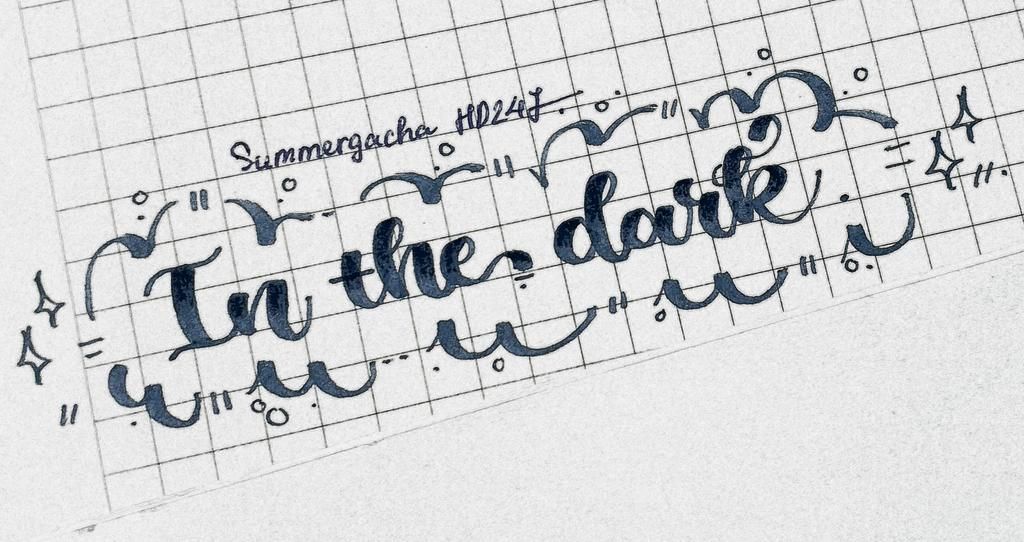 Summergacha HD24J
In the dark